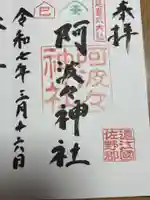 奉拝
阿波々神社
阿波々
神社
遠江國
佐野郡
令和七年三月十六日
巳